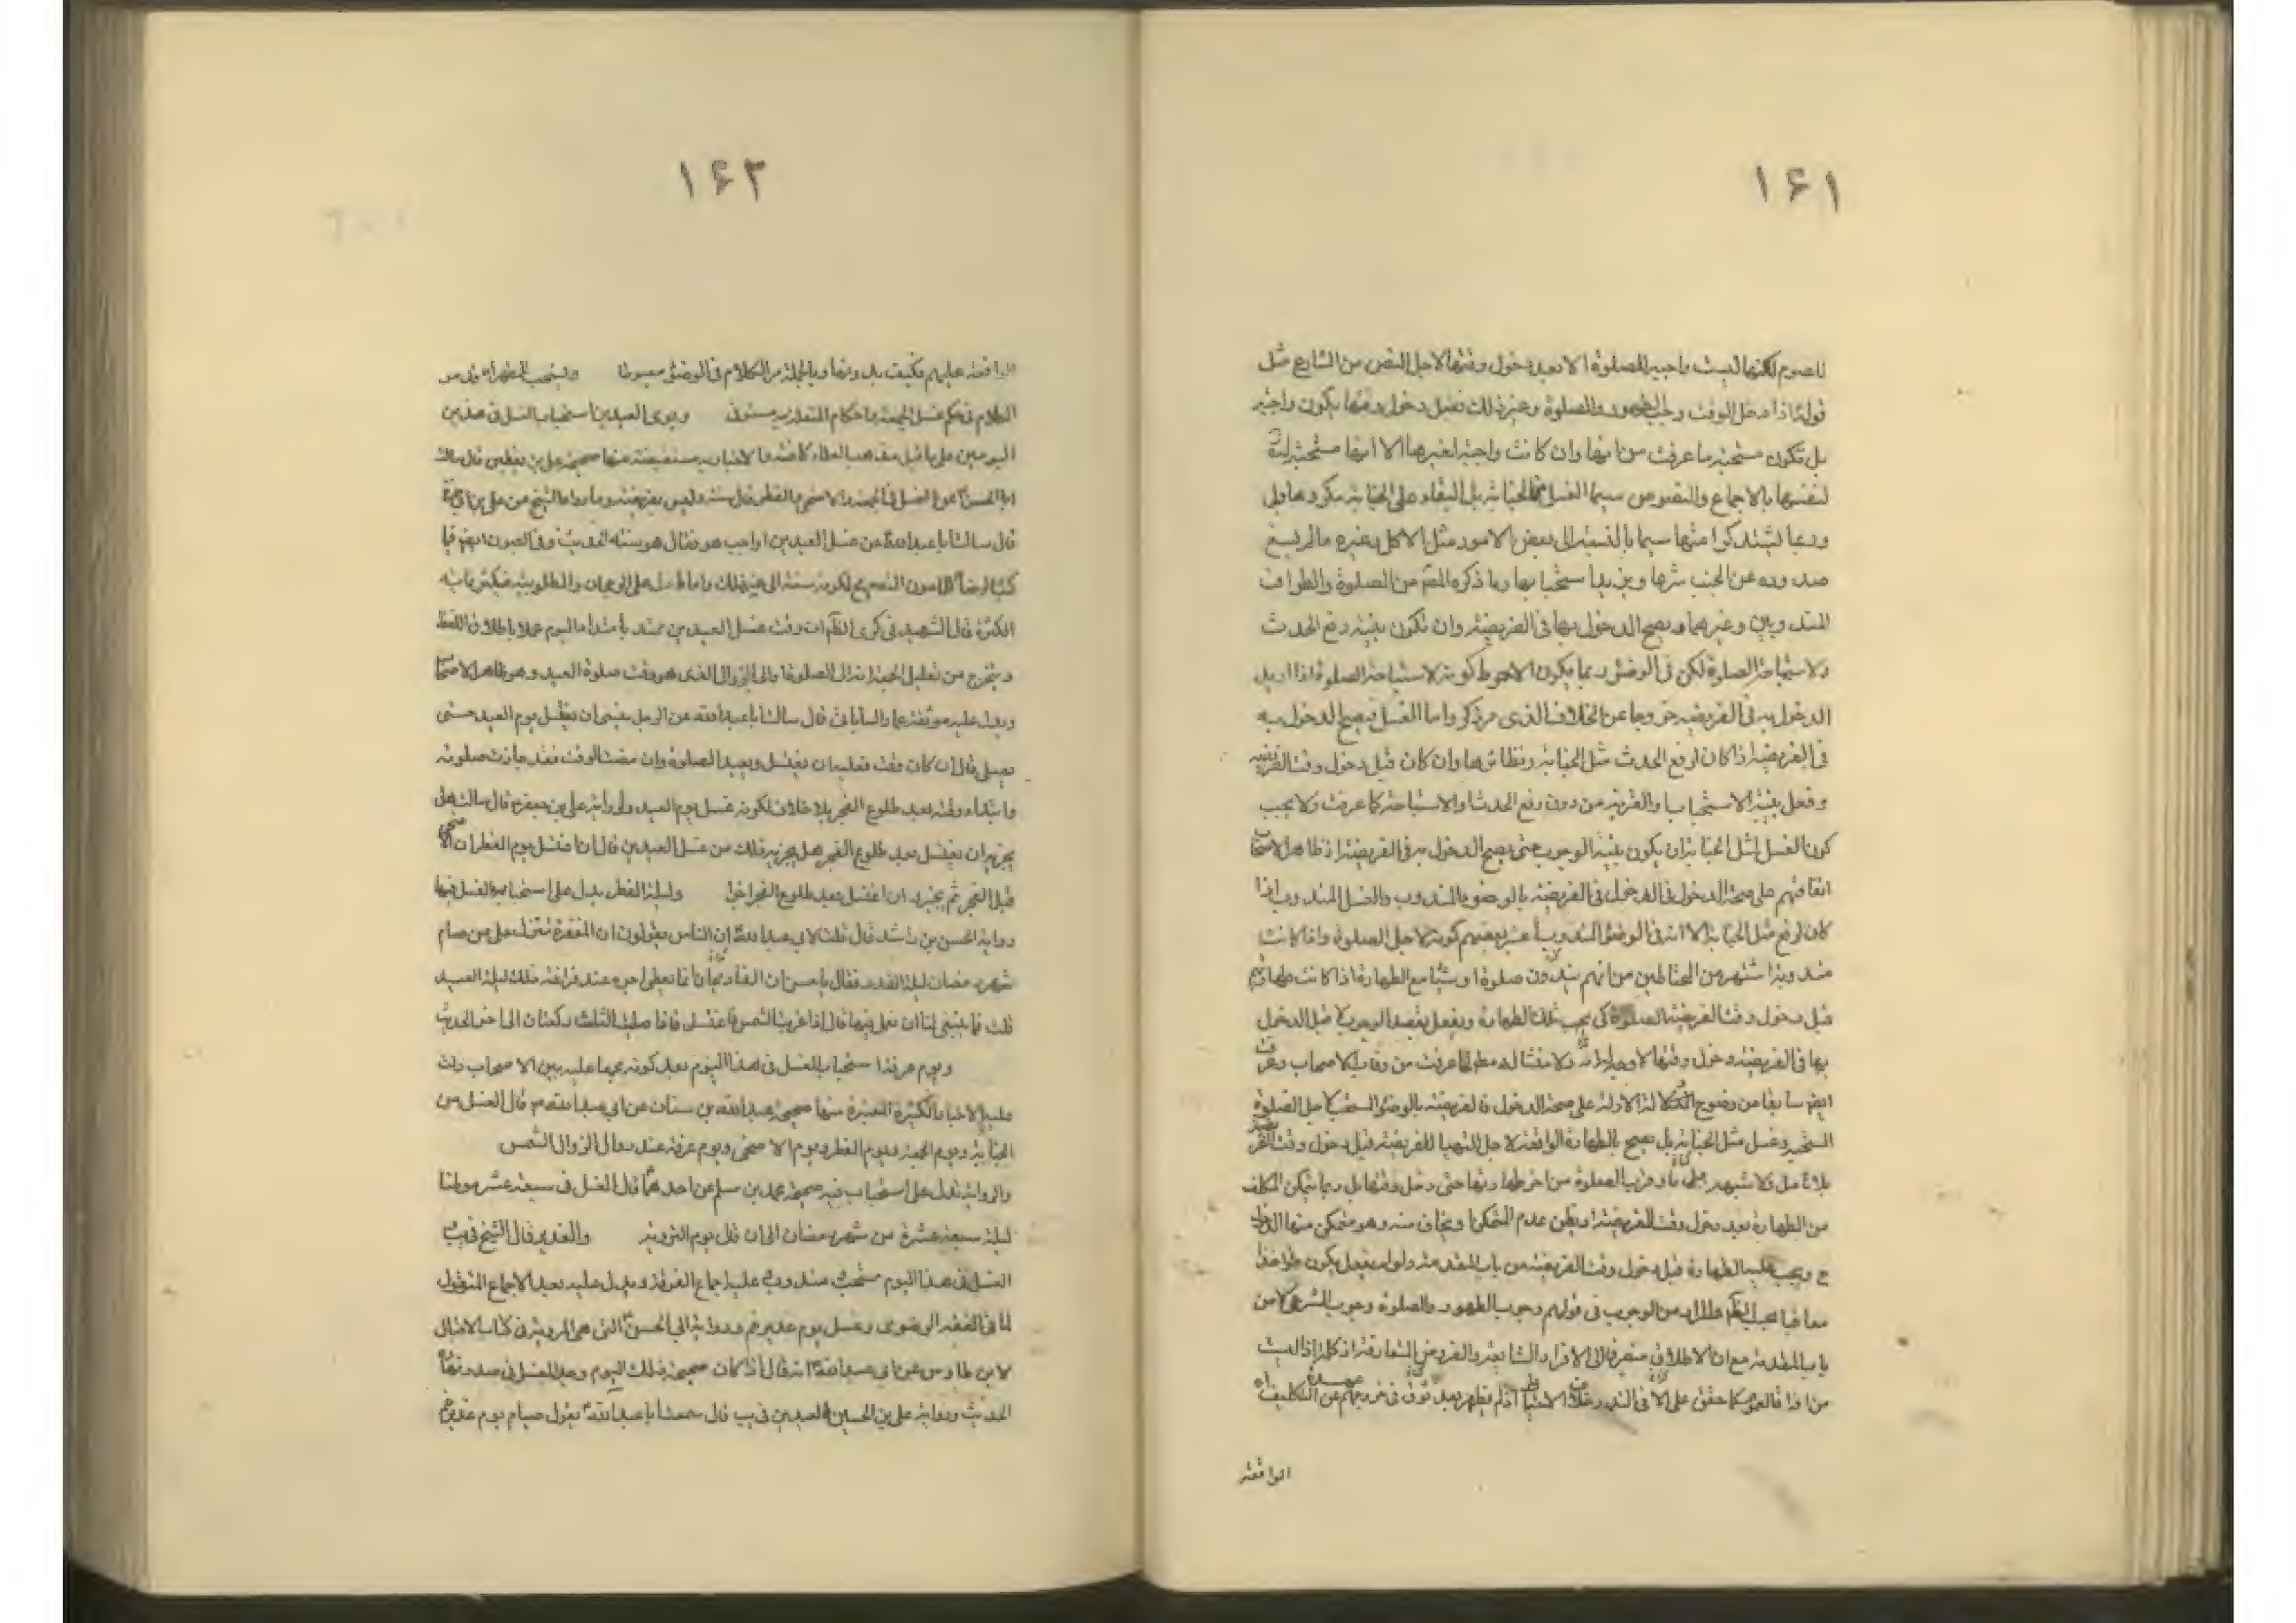 ۱۶۱
للصوم لكنها ليست واجبة للصلوة الا بعد دخول وقتها لاجل النص من الشارع مثل
قوله اذا دخل الوقت وجب الطهور والصلوة وغير ذلك فقبل دخول وقتها يكون واجبة
بل تكون مستحبة ما عرفت من انها وان كانت واجبة لغيرها الا انها مستحبة
لنفسها بالاجماع والنصوص سيما الغسل الجنابة بل البقاء على الجنابة مكروها بل
وربما تشتد كراهتها سيما بالنسبة الى بعض الامور مثل الاكل وغيره مالم يقع
صدوره عن الجنب شرها ويزيد استحبابها وما ذكره المصم من الصلوة والطواف
المندوبين وغيرهما ويصح الدخول بها فى الفريضة وان تكون بنية رفع الحدث
ولاستباحة الصلوة لكن فى الوضوء ربما يكون الاحوط كونه لاستباحة الصلوة اذا اريد
الدخول به فى الفريضة خروجا عن الخلاف الذى مر ذكره واما الغسل فيصح الدخول به
فى الفريضة اذا كان لرفع الحدث مثل الجنابة ونظائرها وان كان قبل دخول وقت الفريضة
وفعل بنية الاستحباب والقربة من دون رفع الحدث والاستباحة كما عرفت ولا يجب
كون الغسل مثل الجنابة ان يكون بنية الوجوب حتى يصح الدخول به فى الفريضة اذ ظاهر الاصحاب
اتفاقهم على صحة الدخول فى الفريضة بالوضوء المندوب والغسل المندوب اذا
كان لرفع مثل الجنابة الا انه فى الوضوء المندوب يعتبر بعضهم كونه لاجل الصلوة واذا كانت
مندوبة اشتهر من المحتاطين من انهم ينذرون صلوة او شيئا مع الطهارة اذا كانت طهارتهم
قبل دخول وقت الفريضة الصلوة كى يجب تلك الطهارة ويفعل بقصد الوجوب لاجل الدخول
بها فى الفريضة دخول وقتها لا وجه له ولا منشا له مطلقا لما عرفت من وفاق الاصحاب وعرفت
ايضم سابقا من وضوح الدلالة الادلة على صحة الدخول فى الفريضة بالوضوء المستحب لاجل الصلوة
المستحبة وغسل مثل الجنابة بل يصح بالطهارة الواقعة لاجل التهيا للفريضة قبل دخول وقت الفريضة
بلا تامل ولا شبهة
من الطهارة بعد دخول وقت الفريضة او يظن عدم التمكن او يخاف منه وهو متمكن منها الدخول
ح ويجب عليه الطهارة قبل دخول وقت الفريضة من باب المقدمة ولو لم يفعل يكون مؤاخذا
معاقبا المراد من الوجوب فى قولهم وجوب الطهور والصلوة وجوب الشرعى لا من
باب المقدمة مع ان الاطلاق منصرف الى الافراد الشايعة والفروض المتعارفة اذ كلمة اذا ليست
الواقعة
۱۶۲
الواقعة عليهم فكيف بدونها وبالجملة مر الكلام فى الوضوء مبسوطا ويستحب للجمعة وقد مر
الكلام فى حكم غسل الجمعة واحكام المتعلقة به مستوفى ويومى العيدين استحباب الغسل فى هذين
اليومين على ما قيل مذهب العلماء كافة والاخبار به مستفيضة منها صحيحة على بن يقطين قال سالت
ابا الحسن ع عن الغسل فى الجمعة والاضحى والفطر قال سنة وليس بفريضة وما رواه الشيخ عن على بن ابى حمزة
قال سالت ابا عبد الله ع عن غسل العيدين اواجب هو فقال هو سنة الحديث وفى العيون ايضم فيما
كتب الرضا ع للمامون التصريح لكونه سنة الى غير ذلك واما ما دل على الرجحان والمطلوبية فكثير غاية
الكثرة قال الشهيد فى كرى الظاهر ان وقت غسل العيدين ممتد بامتداد اليوم عملا باطلاق اللفظ
ويتخرج من تعليل الجمعة انه الى الصلوة او الى الزوال الذى هو وقت صلوة العيد وهو ظاهر الاصحاب
ويدل عليه موثقة عمار الساباطى قال سالت ابا عبد الله عن الرجل ينسى ان يغتسل يوم العيد حتى
يصلى قال ان كان وقت فعليه ان يغتسل ويعيد الصلوة وان مضت الوقت فقد جازت صلوته
وابتداء وقته بعد طلوع الفجر بلا خلاف لكونه غسل يوم العيد ولرواية على بن جعفر ع قال سالته هل
يجزيه ان يغتسل بعد طلوع الفجر هل يجزيه ذلك من غسل العيدين قال ان اغتسل يوم الفطر والاضحى
قبل الفجر لم يجزه وان اغتسل بعد طلوع الفجر اجزأ وليلة الفطر يدل على استحباب الغسل فيها
رواية الحسن بن راشد قال قلت لابى عبد الله ع ان الناس يقولون ان المغفرة تنزل على من صام
شهر رمضان ليلة القدر فقال يا حسن ان القاريجار انما يعطى اجره عند فراغه ذلك ليلة العيد
قلت فما ينبغى لنا ان نعمل فيها قال اذا غربت الشمس فاغتسل فاذا صليت الثلث ركعات الى اخر الحديث
ويوم عرفة استحباب الغسل فى هذا اليوم بعد كونه مجمعا عليه بين الاصحاب دلت
عليه الاخبار الكثيرة المعتبرة منها صحيحة عبد الله بن سنان عن ابى عبد الله ع قال الغسل من
الجنابة ويوم الجمعة ويوم الفطر ويوم الاضحى ويوم عرفة عند زوال الشمس
والتروية تدل على استحباب فيه صحيحة محمد بن مسلم عن احدهما قال الغسل فى سبعة عشر موطنا
ليلة سبعة عشرة من شهر رمضان الى ان قال يوم التروية والغدير قال الشيخ فى يب
الغسل فى هذا اليوم مستحب مندوب عليه اجماع الفرقة ويدل عليه بعد الاجماع المنقول
لما فى الفقه الرضوى وغسل يوم غدير خم ورواية ابى الحسن التى هى المروية فى كتاب الاقبال
لابن طاوس عن ابى عبد الله ع انه قال اذا كان صحيحة ذلك اليوم وجب الغسل فى صدر نهاره
الحديث ورواية على بن الحسين العبدى فى يب قال سمعت ابا عبد الله ع يقول صيام يوم غدير خم